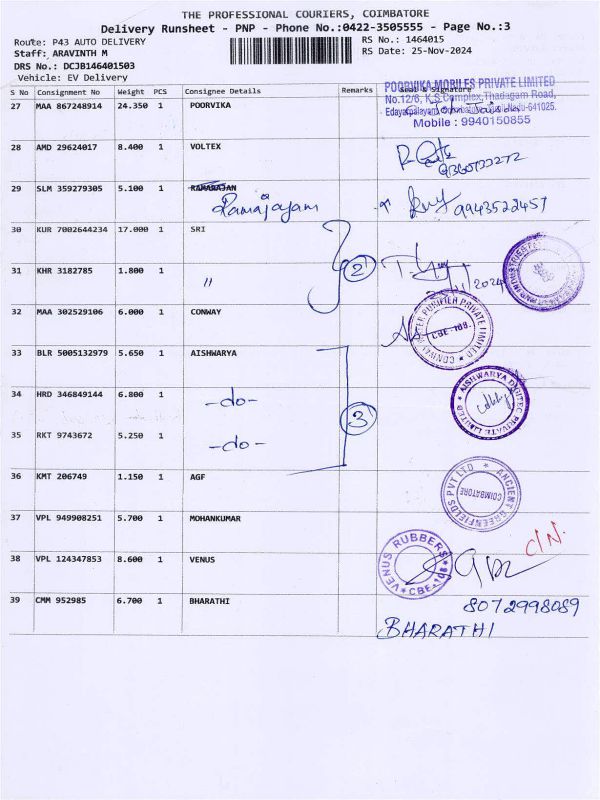 THE PROFESSIONAL COURIERS, COIMBATORE
Delivery Runsheet - PNP - Phone No.:0422-3505555 - Page No.:3
Route: P43 AUTO DELIVERY
RS No.: 1464015
Staff: ARAVINTH M
RS Date: 25-Nov-2024
DRS No.: DCJB146401503
Vehicle: EV Delivery
S No Consignment No Weight PCS Consignee Details Remarks Seal & Signature
POORVIKA MOBILES PRIVATE LIMITED
No.12/6, K.S.Complex,Thadagam Road,
Edayarpalayam, Tamil Nadu-641025.
Mobile : 9940150855
27 MAA 867248914 24.350 1 POORVIKA
28 AMD 29624017 8.400 1 VOLTEX
29 SLM 359279305 5.100 1 RAMARAJAN
Ramajayam
9943522457
30 KUR 7002644234 17.000 1 SRI
2
31 KHR 3182785 1.800 1 "
32 MAA 302529106 6.000 1 CONWAY
WATER PURIFIER PRIVATE LIMITED
CBE-108.
33 BLR 5005132979 5.650 1 AISHWARYA
34 HRD 346849144 6.800 1 -do-
3
AISHWARYA DIGITEC PRIVATE LIMITED
35 RKT 9743672 5.250 1 -do-
36 KMT 206749 1.150 1 AGF
ANCIENT GREENFIELDS PVT LTD
COIMBATORE
37 VPL 949908251 5.700 1 MOHANKUMAR
C/N.
38 VPL 124347853 8.600 1 VENUS
VENUS RUBBERS
CBE-108
39 CMM 952985 6.700 1 BHARATHI
8072998089
BHARATHI